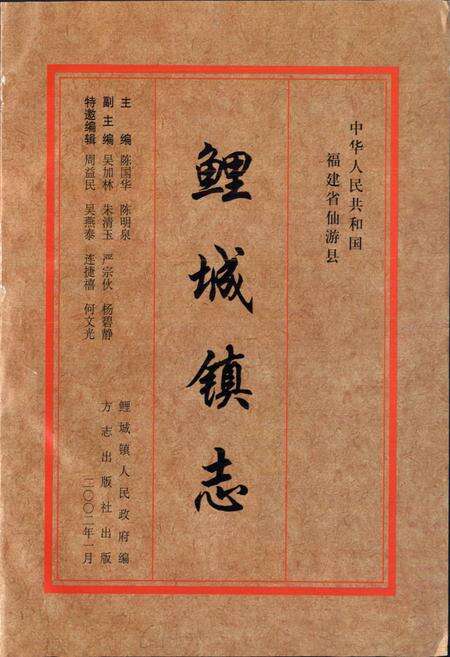 中华人民共和国
福建省仙游县
鲤城镇志
主编 陈国华 陈明泉
副主编 吴加林 朱清玉 严宗伙 杨碧静
特邀编辑 周益民 吴燕泰 连捷禧 何文光
鲤城镇人民政府编
方志出版社出版
二〇〇二年一月